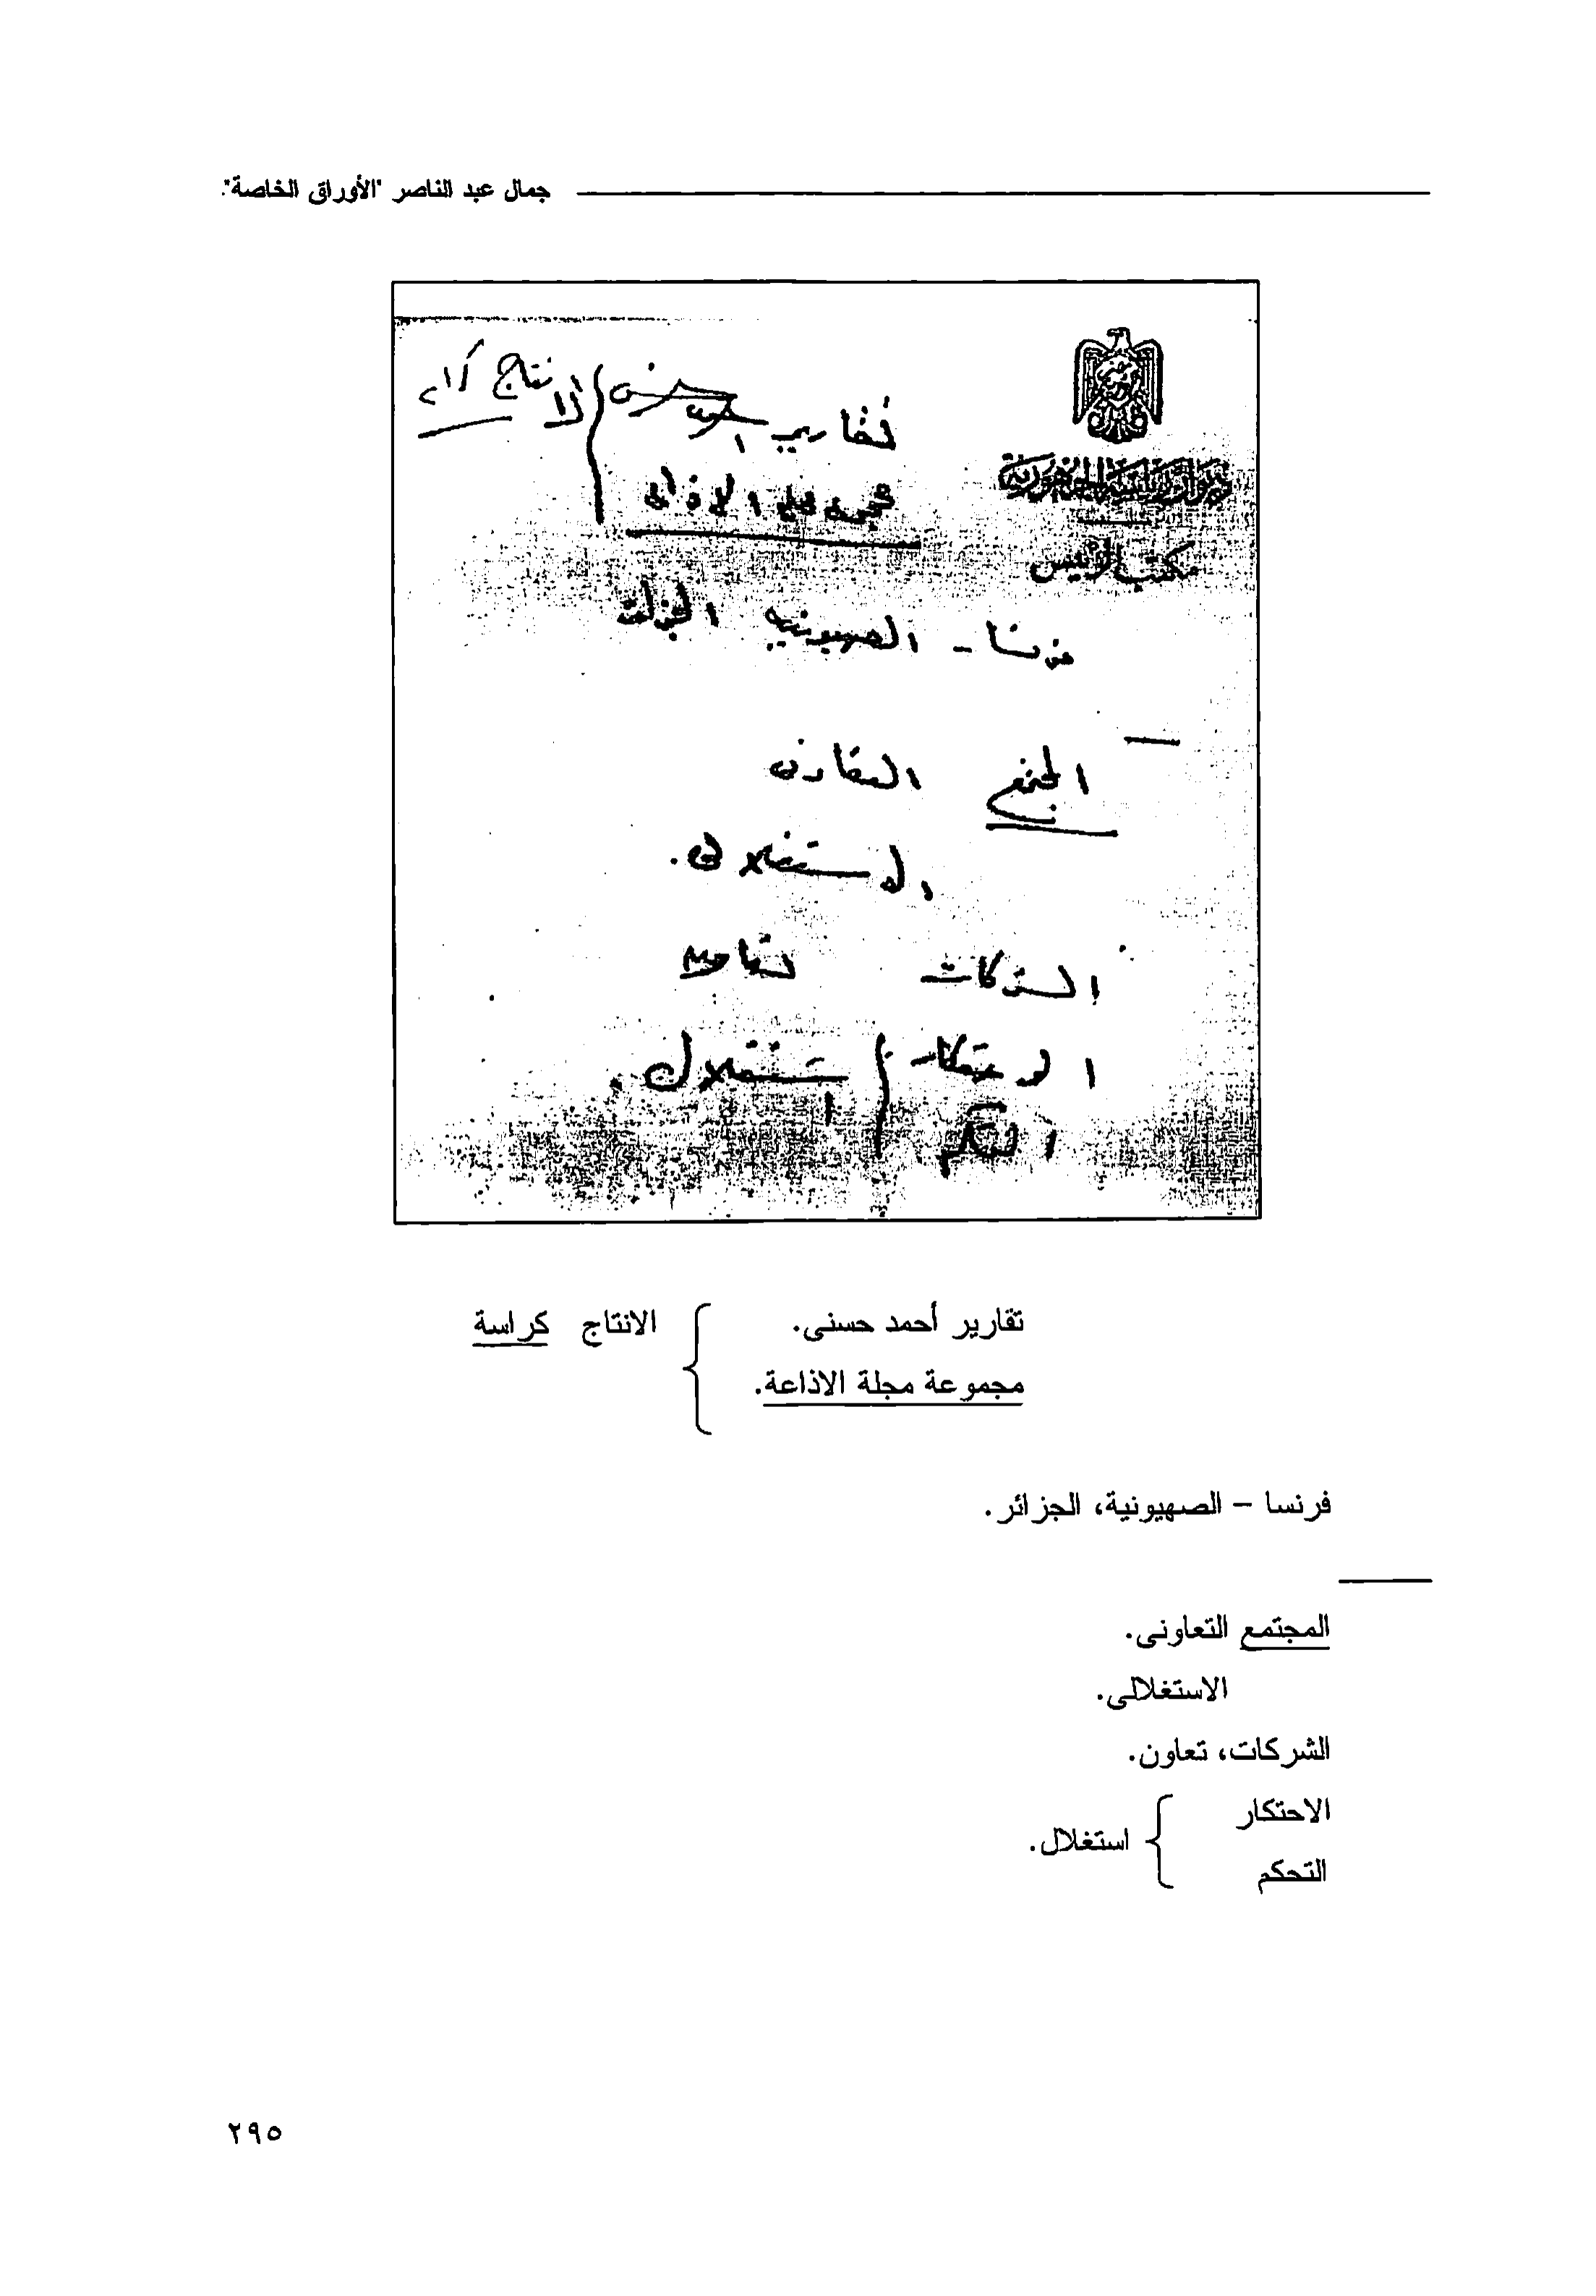 جمال عبد الناصر "الأوراق الخاصة".
ديوان رئاسة الجمهورية
مكتب الرئيس
تقارير احمد حسنى } الانتاج كراسه
مجموعة مجلة الاذاعه
فرنسا - الصهيونيه الجزائر
المجتمع التعاونى
الاستغلالى.
الشركات تعاون
الاحتكار } استغلال.
التحكم
تقارير أحمد حسنى. } الانتاج كراسة
مجموعة مجلة الاذاعة.
فرنسا – الصهيونية، الجزائر.
المجتمع التعاونى.
الاستغلالى.
الشركات، تعاون.
الاحتكار } استغلال.
التحكم
٢٩٥